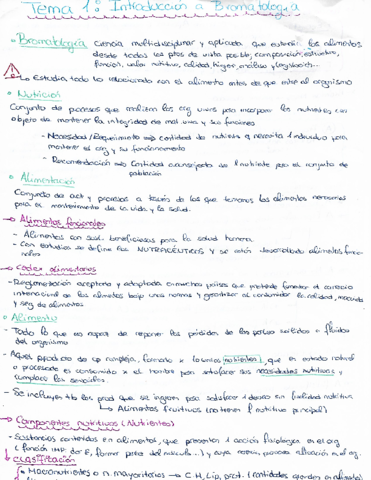 Tema 1: Introducción a Bromatología
Bromatología Ciencia multidisciplinar y aplicada que estudia los alimentos
desde todos los ptos de vista posible, composición, estructura,
función, valor nutritivo, calidad, higiene, análisis y legislación...
Estudia todo lo relacionado con el alimento antes de que entre al organismo
Nutrición
Conjunto de procesos que realizan los org vivos para incorporar los nutrientes con
objeto de mantener la integridad de mat. viva y sus funciones
- Necesidad/Requerimiento → cantidad de nutriente q necesita 1 individuo para
mantener el org y su funcionamiento
- Recomendación → Cantidad aconsejada de 1 nutriente para el conjunto de
población
Alimentación
Conjunto de act y procesos a través de los que tomamos los alimentos necesarios
para el mantenimiento de la vida y la salud.
→ Alimentos funcionales
- Alimentos con sust. beneficiosas para la salud humana
- Con estudios se define los NUTRACÉUTICOS y se están desarrollando alimentos funcio-
nales
→ Codex alimentarius
- Reglamentación aceptada y adoptada x muchos países que pretende fomentar el comercio
internacional de los alimentos bajo unas normas y garantizar al consumidor la calidad,
y seg de alimentos
Alimento
- Todo lo que es capaz de reponer las pérdidas de las partes sólidas o fluidas
del organismo
- Aquel producto de cp compleja, formado x los nutrientes, que en estado natural
o procesado es consumido x el hombre para satisfacer sus necesidades nutritivas y
complacer los sentidos.
- Se incluyen tb los prod que se ingieren para satisfacer 1 deseo sin finalidad nutritiva
↳ Alimentos fruitivos (no tienen 1 nutritivo principal)
→ Componentes nutritivos (Nutrientes)
- Sustancias contenidas en alimentos, que presentan 1 acción fisiológica en el org
(función imp. dar E, formar parte del músculo...) y cuya carencia provoca alteración en el org.
↓ CLASIFICACIÓN
Macronutrientes o n. mayoritarios → C, H, Lip, prot. (cantidades grandes en alimentos)